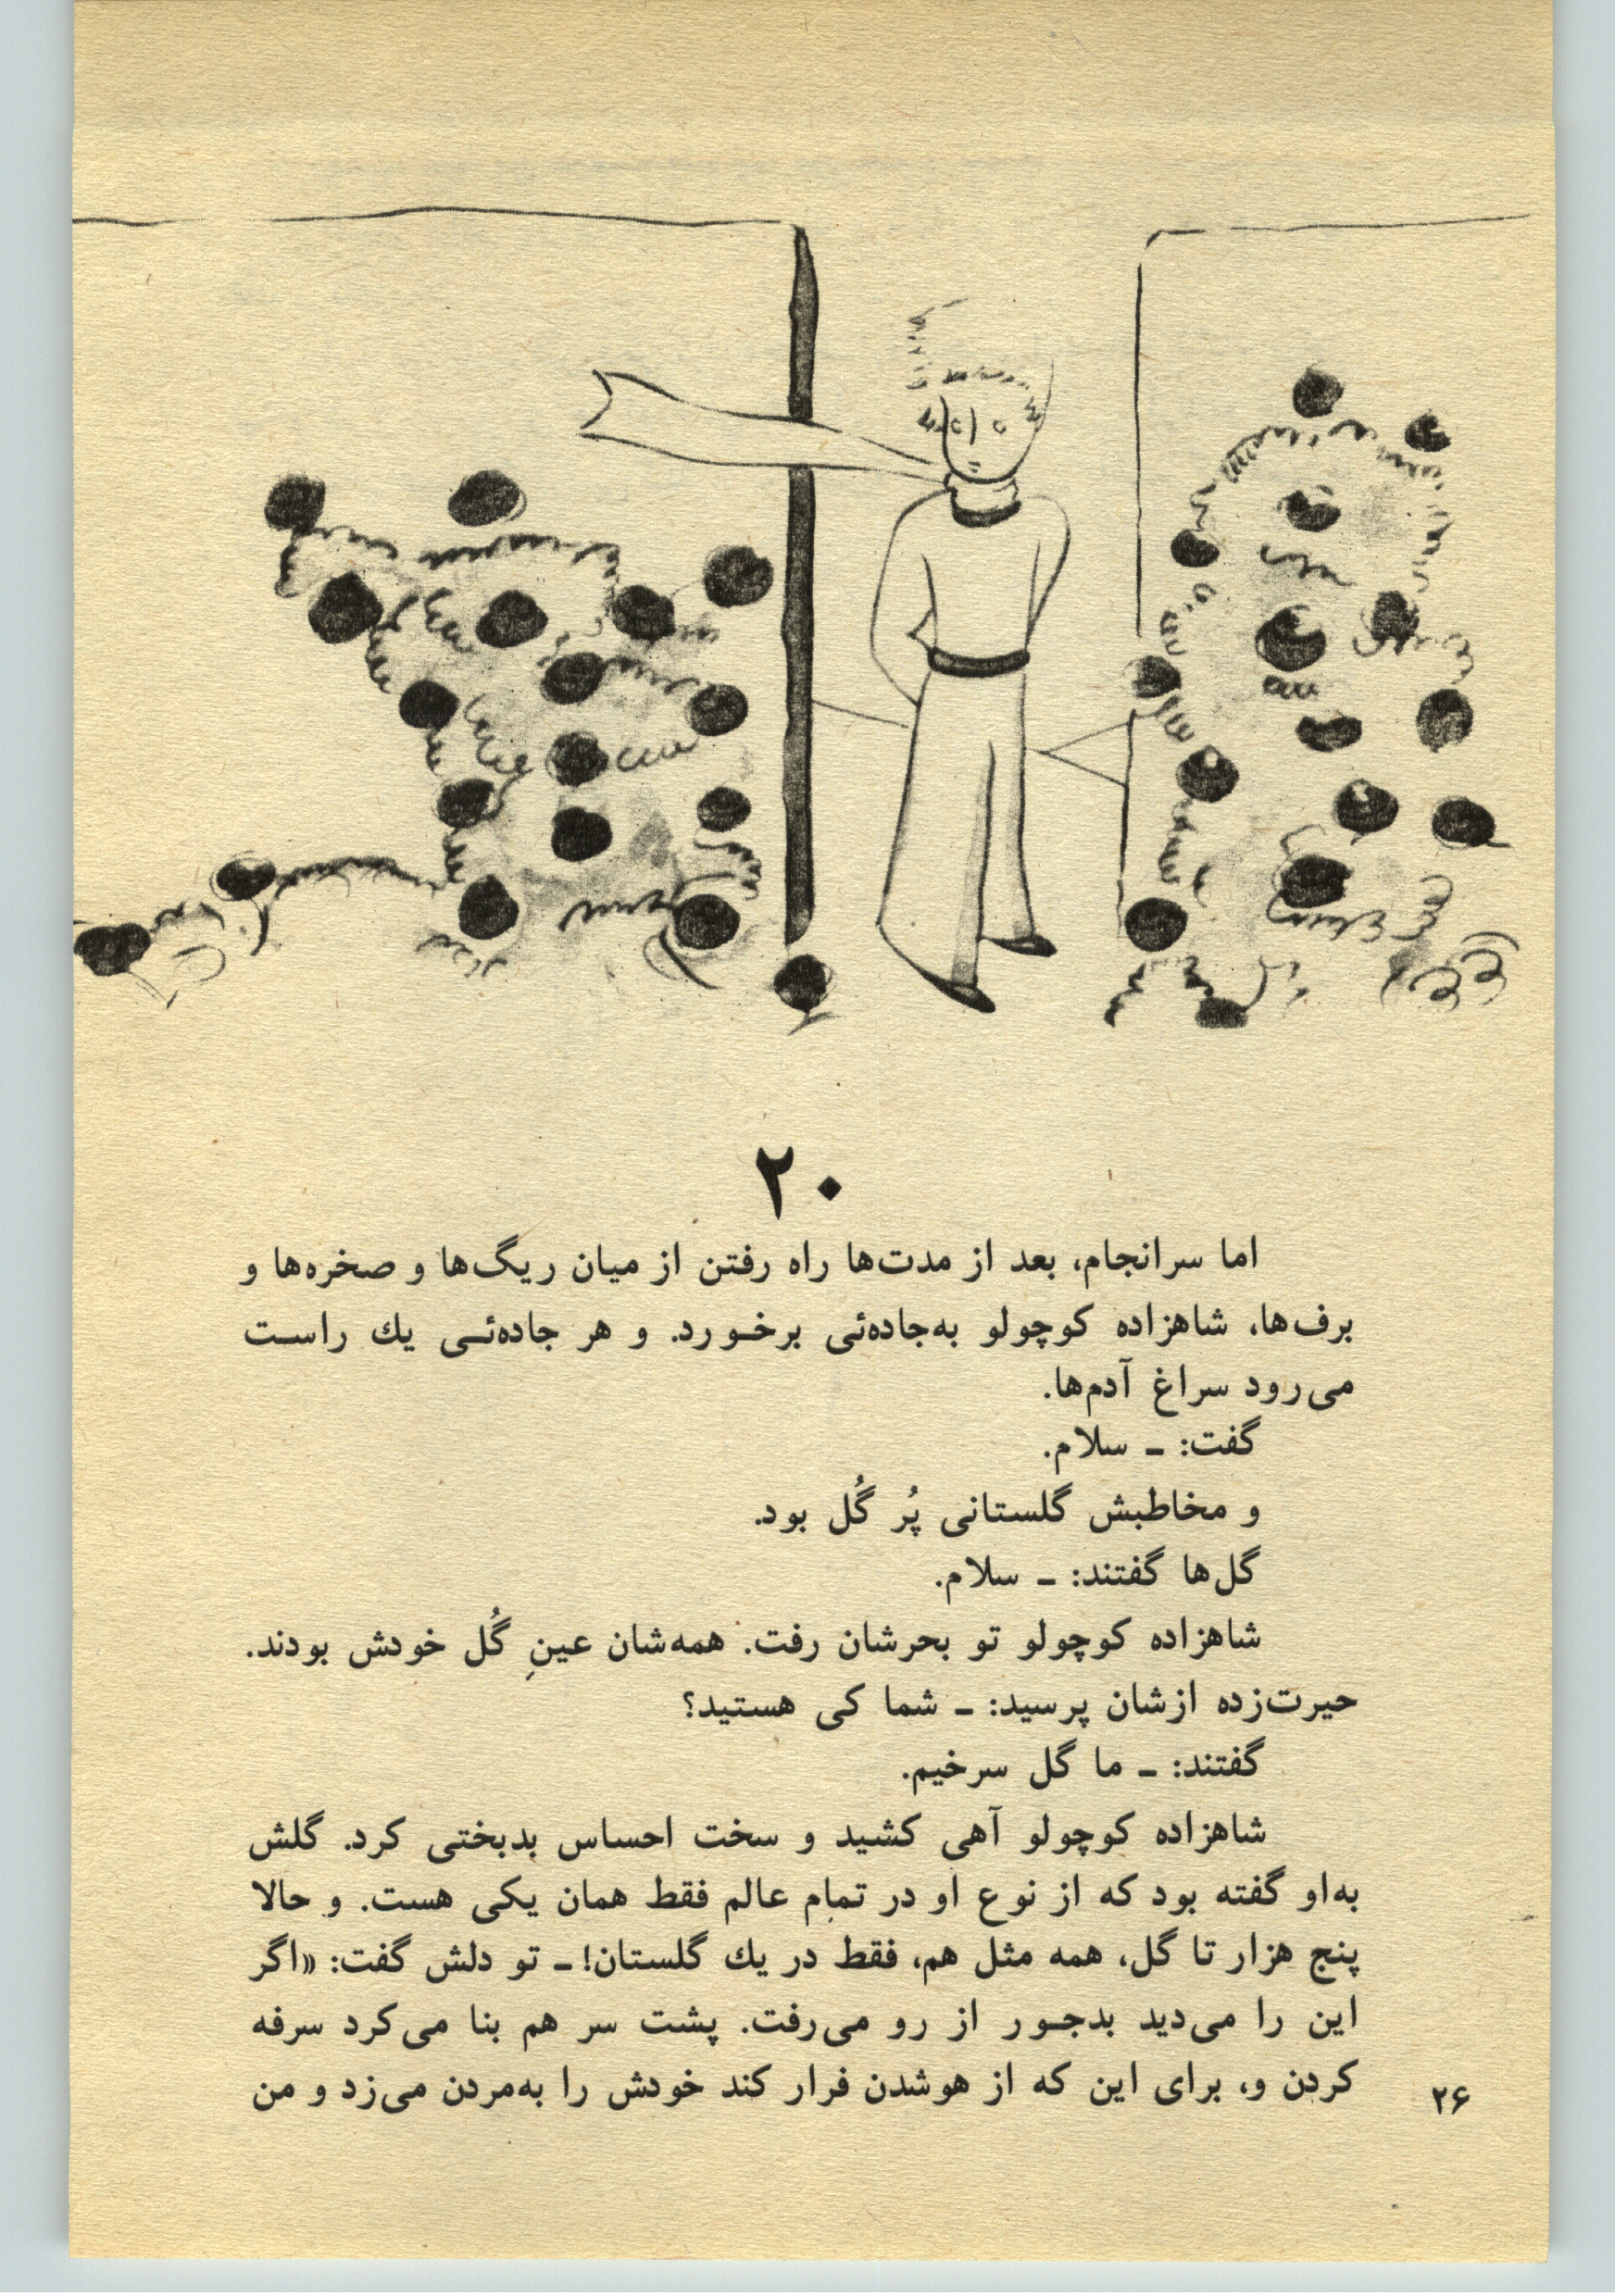 ۲۰
اما سرانجام، بعد از مدت‌ها راه رفتن از میان ریگ‌ها و صخره‌ها و
برف‌ها، شاهزاده کوچولو به‌جاده‌ئی برخورد. و هر جاده‌ئی یك راست
می‌رود سراغ آدم‌ها.
گفت: ـ سلام.
و مخاطبش گلستانی پُر گُل بود.
گل‌ها گفتند: ـ سلام.
شاهزاده کوچولو تو بحرشان رفت. همه‌شان عینِ گُل خودش بودند.
حیرت‌زده ازشان پرسید: ـ شما کی هستید؟
گفتند: ـ ما گل سرخیم.
شاهزاده کوچولو آهی کشید و سخت احساس بدبختی کرد. گلش
به‌او گفته بود که از نوع او در تمام عالم فقط همان یکی هست. و حالا
پنج هزار تا گل، همه مثل هم، فقط در یك گلستان! ـ تو دلش گفت: «اگر
این را می‌دید بدجور از رو می‌رفت. پشت سر هم بنا می‌کرد سرفه
کردن و، برای این که از هوشدن فرار کند خودش را به‌مردن می‌زد و من
۲۶